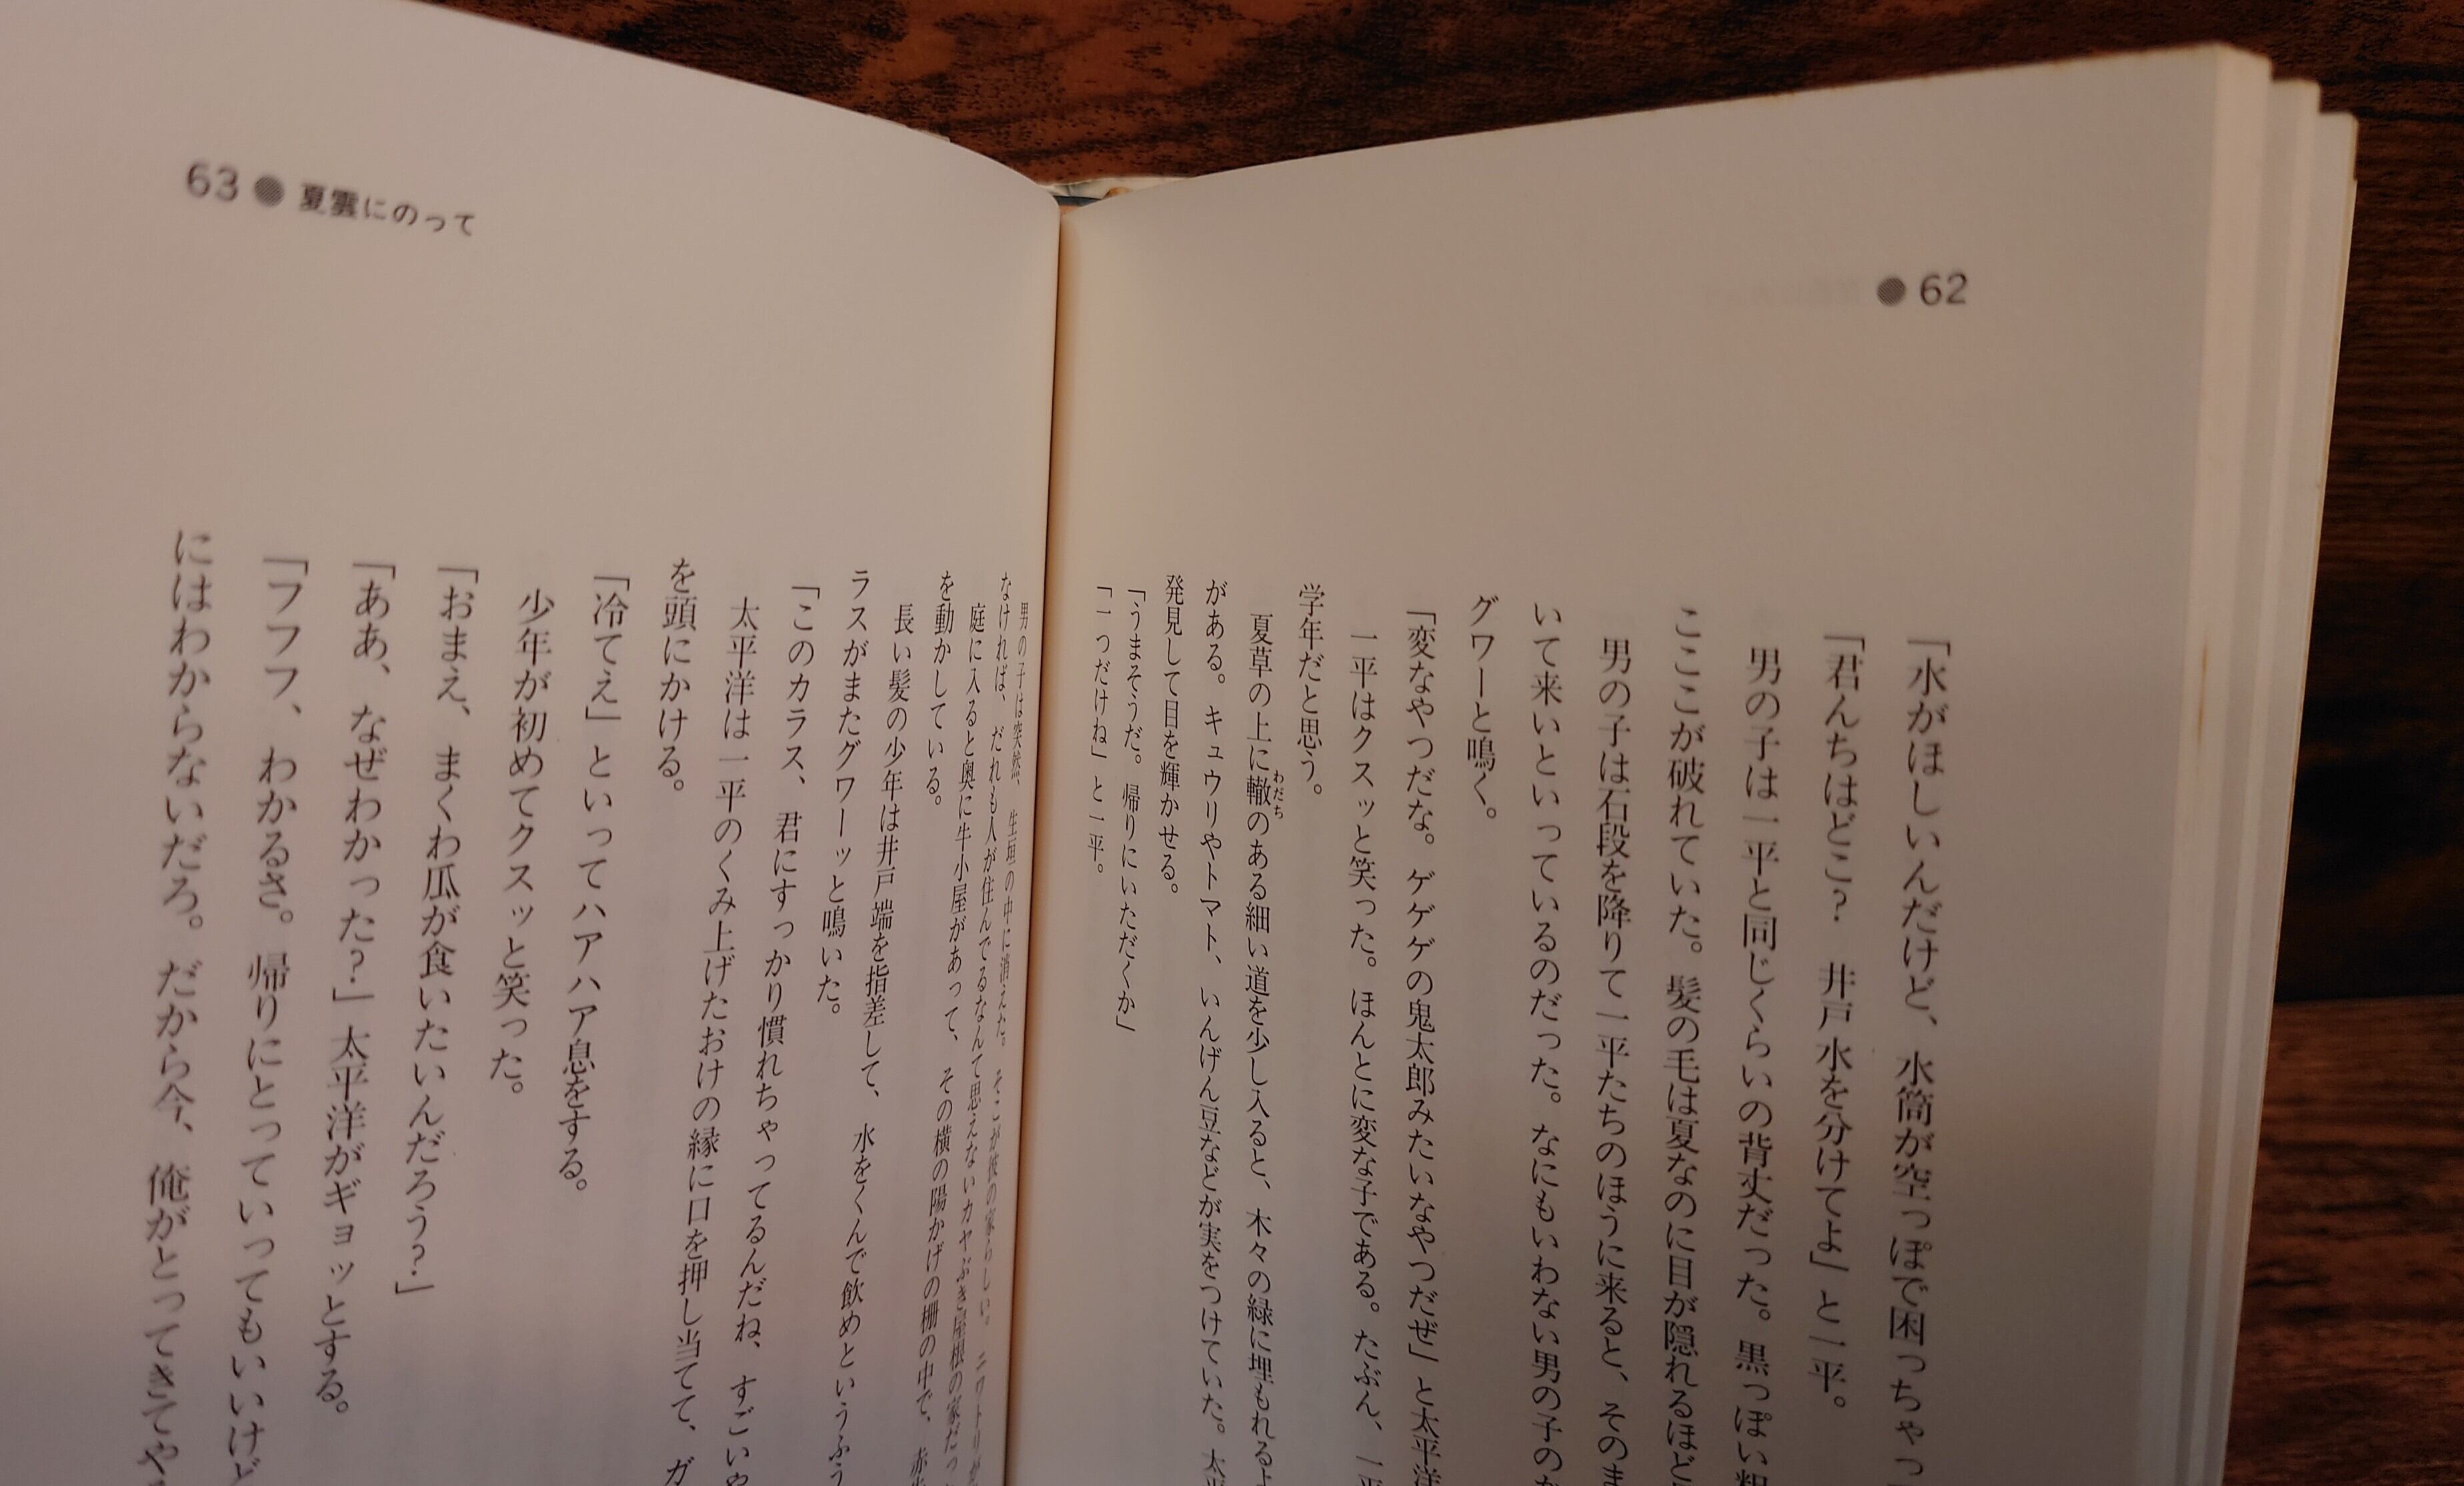 62
「水がほしいんだけど、水筒が空っぽで困っちゃっ
「君んちはどこ？　井戸水を分けてよ」と一平。
男の子は一平と同じくらいの背丈だった。黒っぽい
ここが破れていた。髪の毛は夏なのに目が隠れるほど
男の子は石段を降りて一平たちのほうに来ると、そのま
いて来いといっているのだった。なにもいわない男の子の
グワーと鳴く。
「変なやつだな。ゲゲゲの鬼太郎みたいなやつだぜ」と太平洋
一平はクスッと笑った。ほんとに変な子である。たぶん、一平
学年だと思う。
夏草の上に轍のある細い道を少し入ると、木々の緑に埋もれるよ
わだち
がある。キュウリやトマト、いんげん豆などが実をつけていた。太
発見して目を輝かせる。
「うまそうだ。帰りにいただくか」
「一つだけね」と一平。
63 夏雲にのって
男の子は突然、生垣の中に消えた。そこが彼の家らしい。ニワトリが
なければ、だれも人が住んでるなんて思えないカヤぶき屋根の家だっ
庭に入ると奥に牛小屋があって、その横の陽かげの柵の中で、赤
を動かしている。
長い髪の少年は井戸端を指差して、水をくんで飲めというふう
ラスがまたグワーッと鳴いた。
「このカラス、君にすっかり慣れちゃってるんだね、すごいや
太平洋は一平のくみ上げたおけの縁に口を押し当てて、ガ
を頭にかける。
「冷てえ」といってハアハア息をする。
少年が初めてクスッと笑った。
「おまえ、まくわ瓜が食いたいんだろう？」
「ああ、なぜわかった？」太平洋がギョッとする。
「フフフ、わかるさ。帰りにとっていってもいいけど
にはわからないだろ。だから今、俺がとってきてや